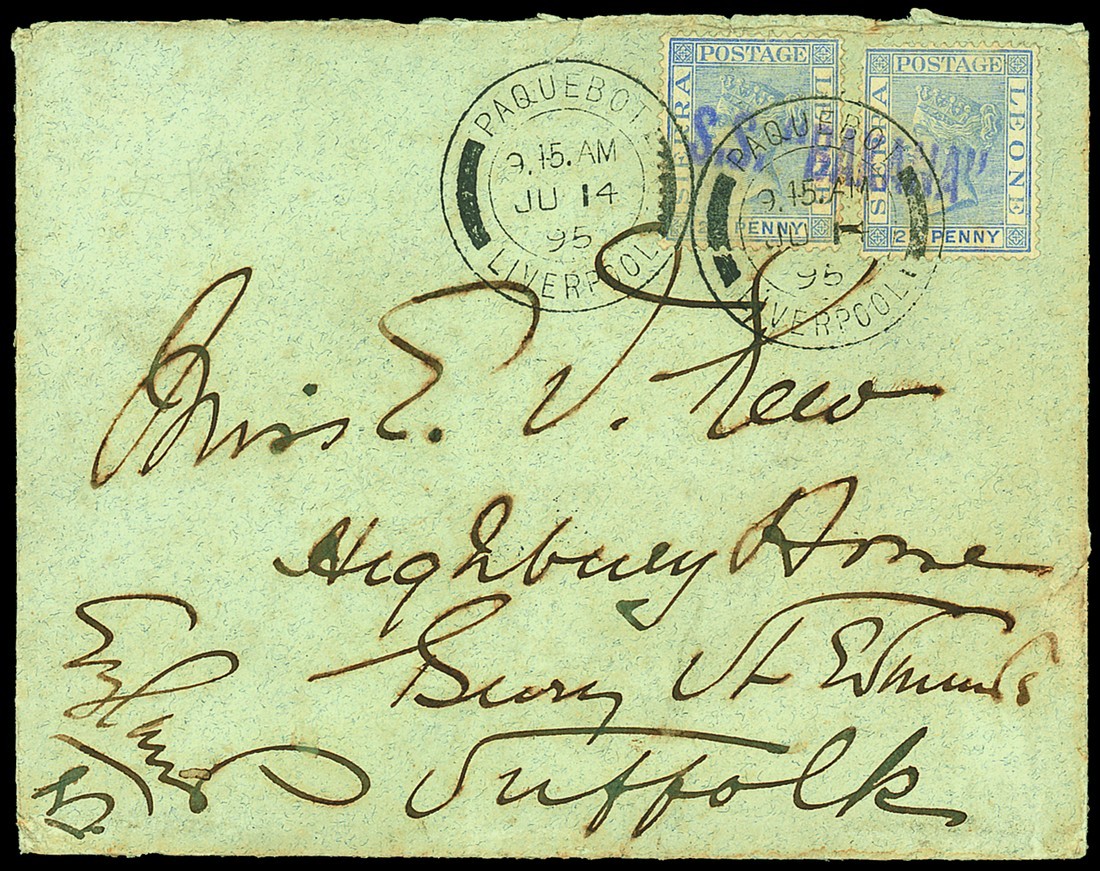 PAQUEBOT
9.15.AM
JU 14
95
LIVERPOOL
POSTAGE
SIERRA LEONE
PENNY
PAQUEBOT
9.15.AM
JU 1
95
LIVERPOOL
POSTAGE
SIERRA LEONE
2 PENNY
S.S. "BAKANA"
Miss E. V. Rew
Highbury House
Bury St Edmunds
Suffolk
England